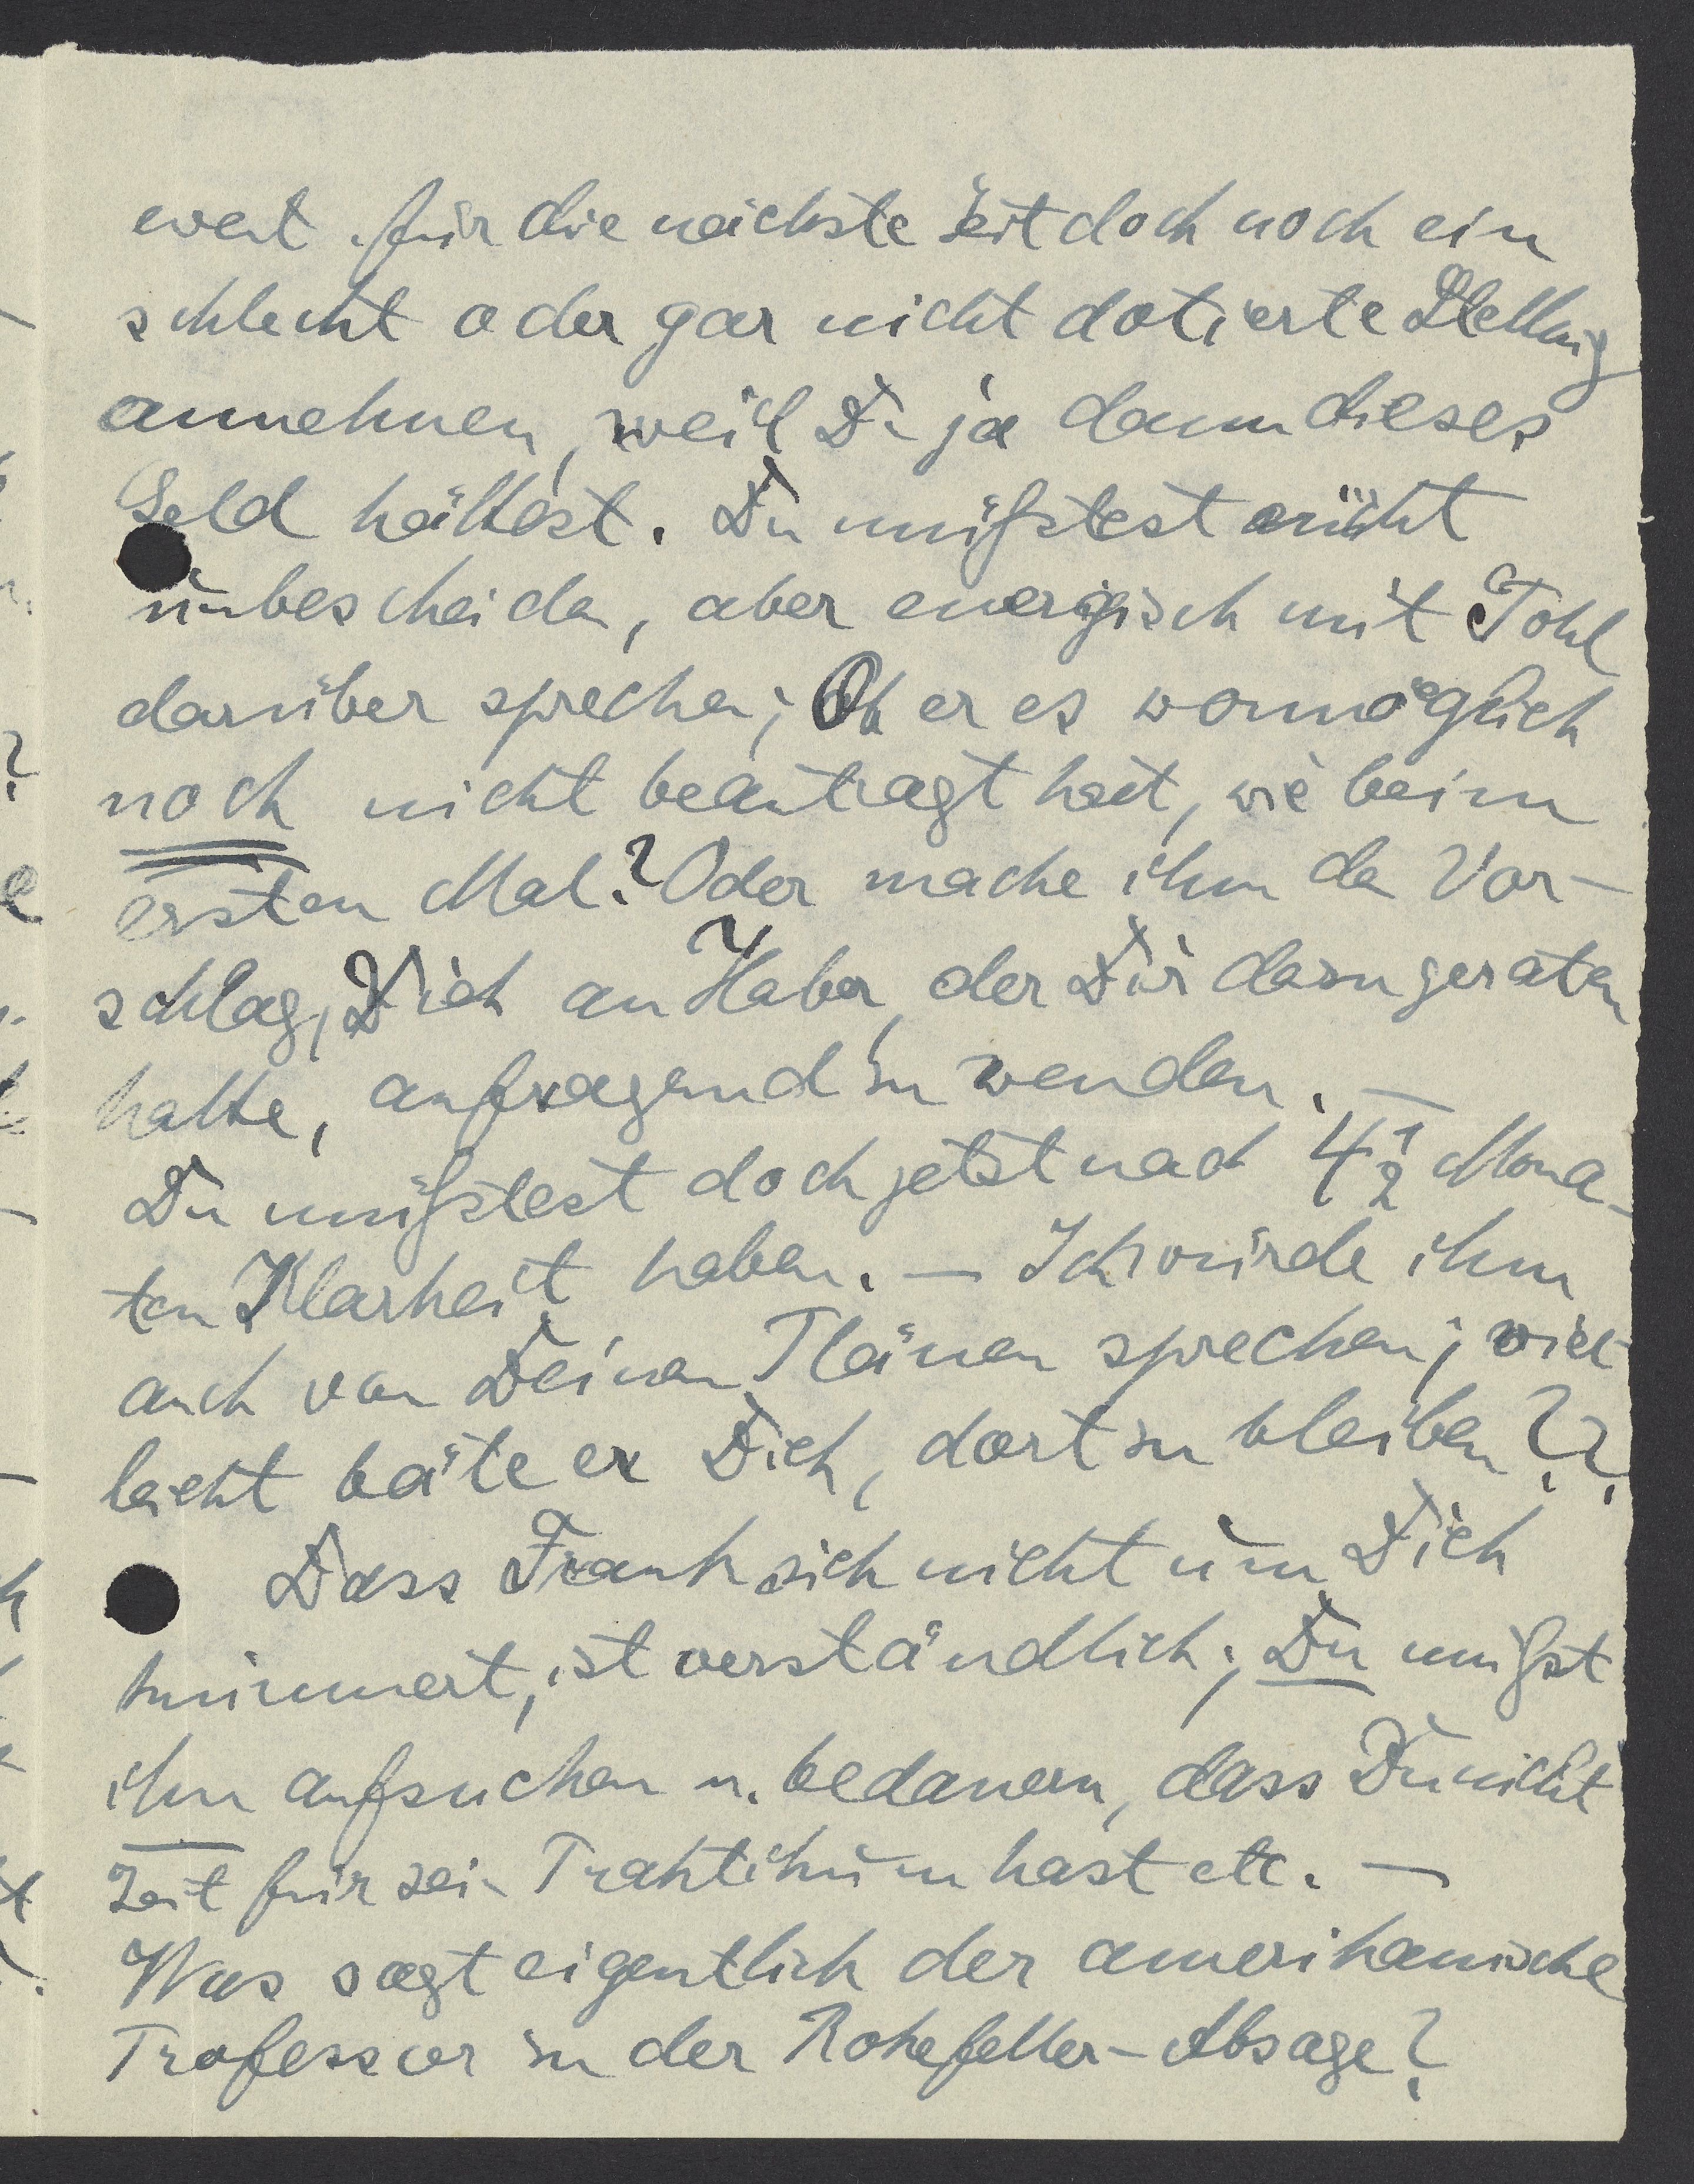 event. für die nächste Zeit doch noch ein
schlecht oder gar nicht dotierte Stellung
annehmen, weil Du ja dann dieses
Geld hättest. Du müßtest nicht
unbescheiden, aber energisch mit Pohl
darüber sprechen; Ob er es womöglich
noch nicht beantragt hat, wie beim
ersten Mal? Oder mache ihm den Vor-
schlag, Dich an Haber, der Dir dazu geraten
hatte, anfragend zu wenden. —
Du müßtest doch jetzt nach 4½ Mona-
ten Klarheit haben. — Ich würde ihm
auch von Deinen Plänen sprechen; viel-
leicht bäte er Dich, dort zu bleiben??
Dass Frank sich nicht um Dich
kümmert, ist verständlich; Du mußt
ihn aufsuchen u. bedauern, dass Du nicht
Zeit für sein Praktikum hast etc. —
Was sagt eigentlich der amerikanische
Professor zu der Rokefeller-Absage?